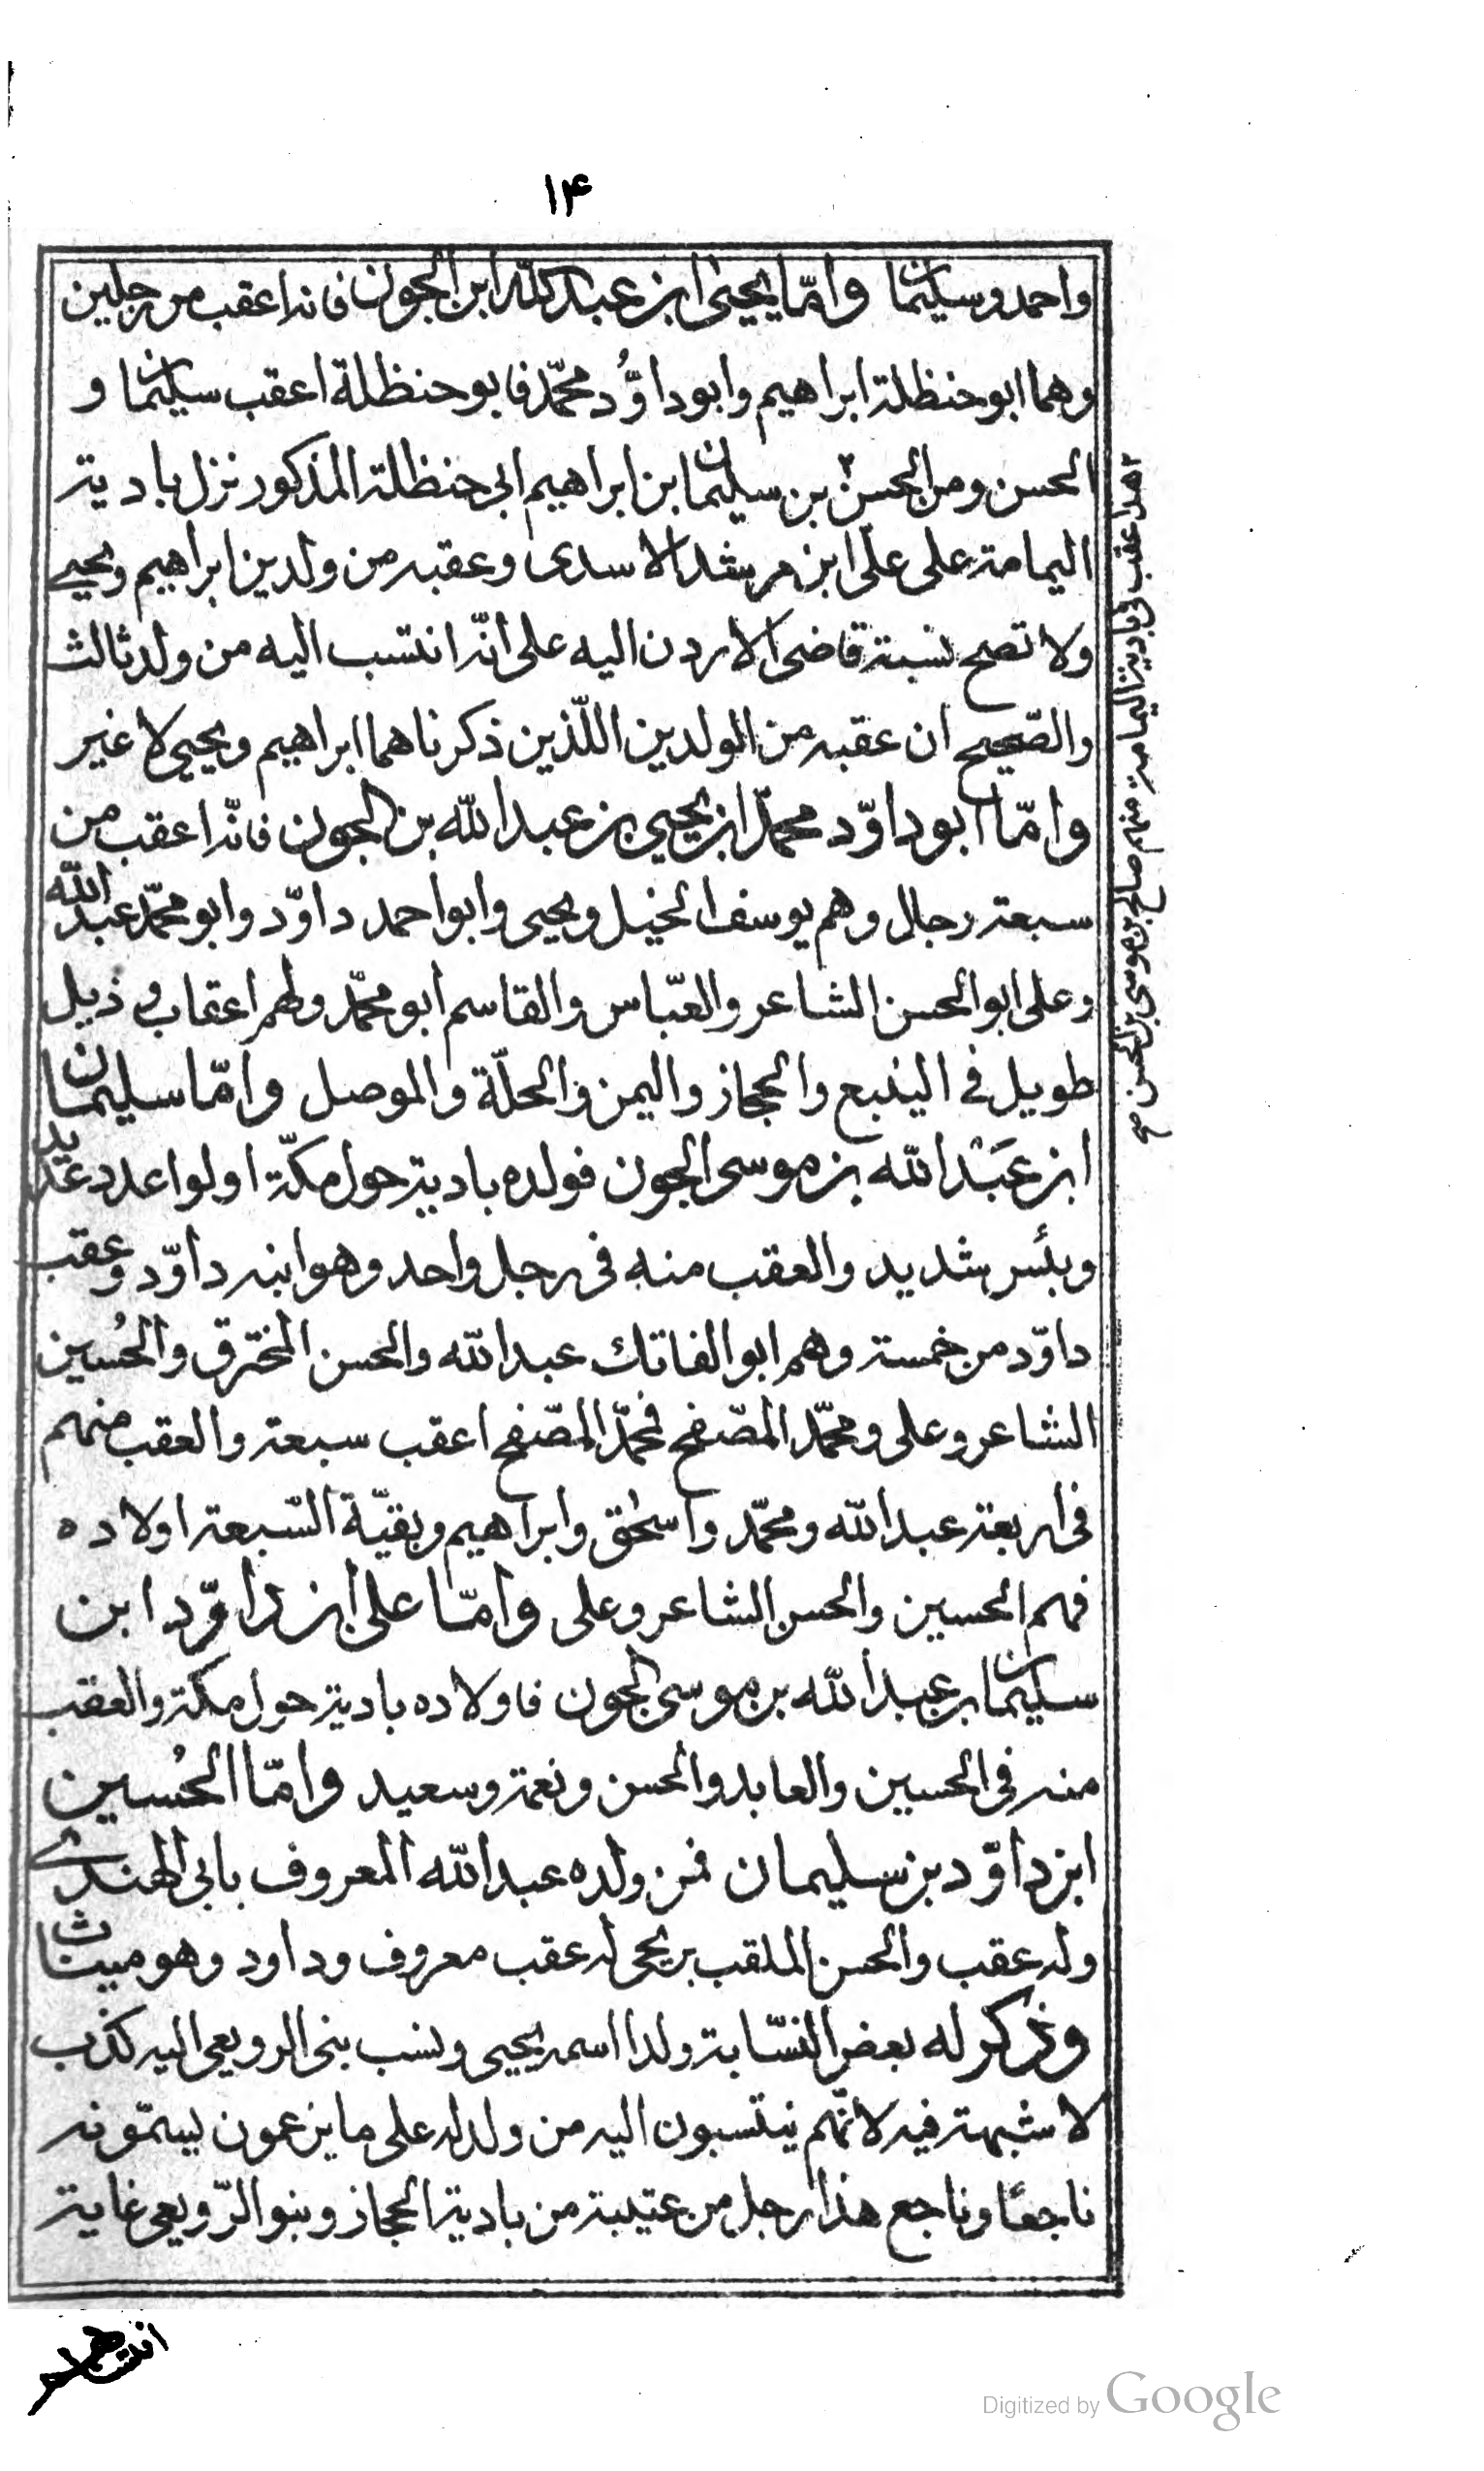 ۱۴
واحمد وسليمان واما يحيى ابن عبد الله ابن الجون فانه اعقب من رجلين
وهما ابو حنظلة ابراهيم وابو داوُّد محمّد فابو حنظلة اعقب سليمان و
الحسن ومن الحسن بن سليمان ابن ابراهيم ابى حنظلة المذكور نزل بادية
اليمامة على علىّ ابن مرشد الاسدى وعقبه من ولدين ابراهيم ويحيى
ولا تصح نسبة قاضى الاردن اليه على انّه انتسب اليه من ولد ثالث
والصّحيح ان عقبه من الولدين اللّذين ذكرناهما ابراهيم ويحيى لا غير
وامّا ابو داوّد محمّد ابن يحيى بن عبد الله بن الجون فانّه اعقب من
سبعة رجال وهم يوسف الخيل ويحيى وابو احمد داوّد وابو محمّد عبد الله
وعلى ابو الحسن الشاعر والعبّاس والقاسم ابو محمّد ولهم اعقاب و ذيل
طويل فى الينبع والحجاز واليمن والحلّة والموصل وامّا سليمان
ابن عَبْد الله بن موسى الجون فولده بادية حول مكّة اولوا عدد عديد
وبئس شديد والعقب منه فى رجل واحد وهو ابنه داوّد وعقب
داوّد من خمسة وهم ابو الفاتك عبد الله والحسن المخترق والحُسين
الشاعر وعلى ومحمّد المصّفح فمحمّد المصّفح اعقب سبعة والعقب منهم
فى اربعة عبد الله ومحمّد واسحٰق وابراهيم وبقيّة السّبعة اولاده
فهم الحسين والحسن الشاعر وعلى وامّا على ابن داوّد ابن
سليمان بن عبد الله بن موسى الجون فاولاده بادية حول مكة والعقب
منه فى الحسين والعابد والحسن ونعمة وسعيد وامّا الحُسين
ابن داوّد بن سليمان فمن ولده عبد الله المعروف بابى الهندے
وله عقب والحسن الملقب له عقب معروف وداود وهو ميناث
وذكر له بعض النسّابة ولدا اسمه يحيى ونسب بنى الرويعى اليه كذب
لا شبهة فيه لانّهم ينتسبون اليه من ولد له على ما يزعمون يسمّونه
ناجعًا وناجع هذا رجل من عتيبة من بادية الحجاز وبنو الرّويعى غاية
هذا عقب فى بادية اليمامة منهم صالح بن موسى بن الحسن صح